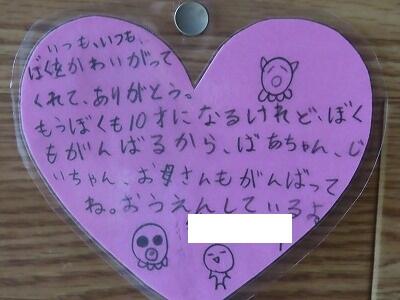 いつも、いつも、
ぼくをかわいがって
くれて、ありがとう。
もうぼくも10才になるけれど、ぼく
もがんばるから、ばあちゃん、じ
いちゃん、お母さんもがんばって
ね。おうえんしているよ